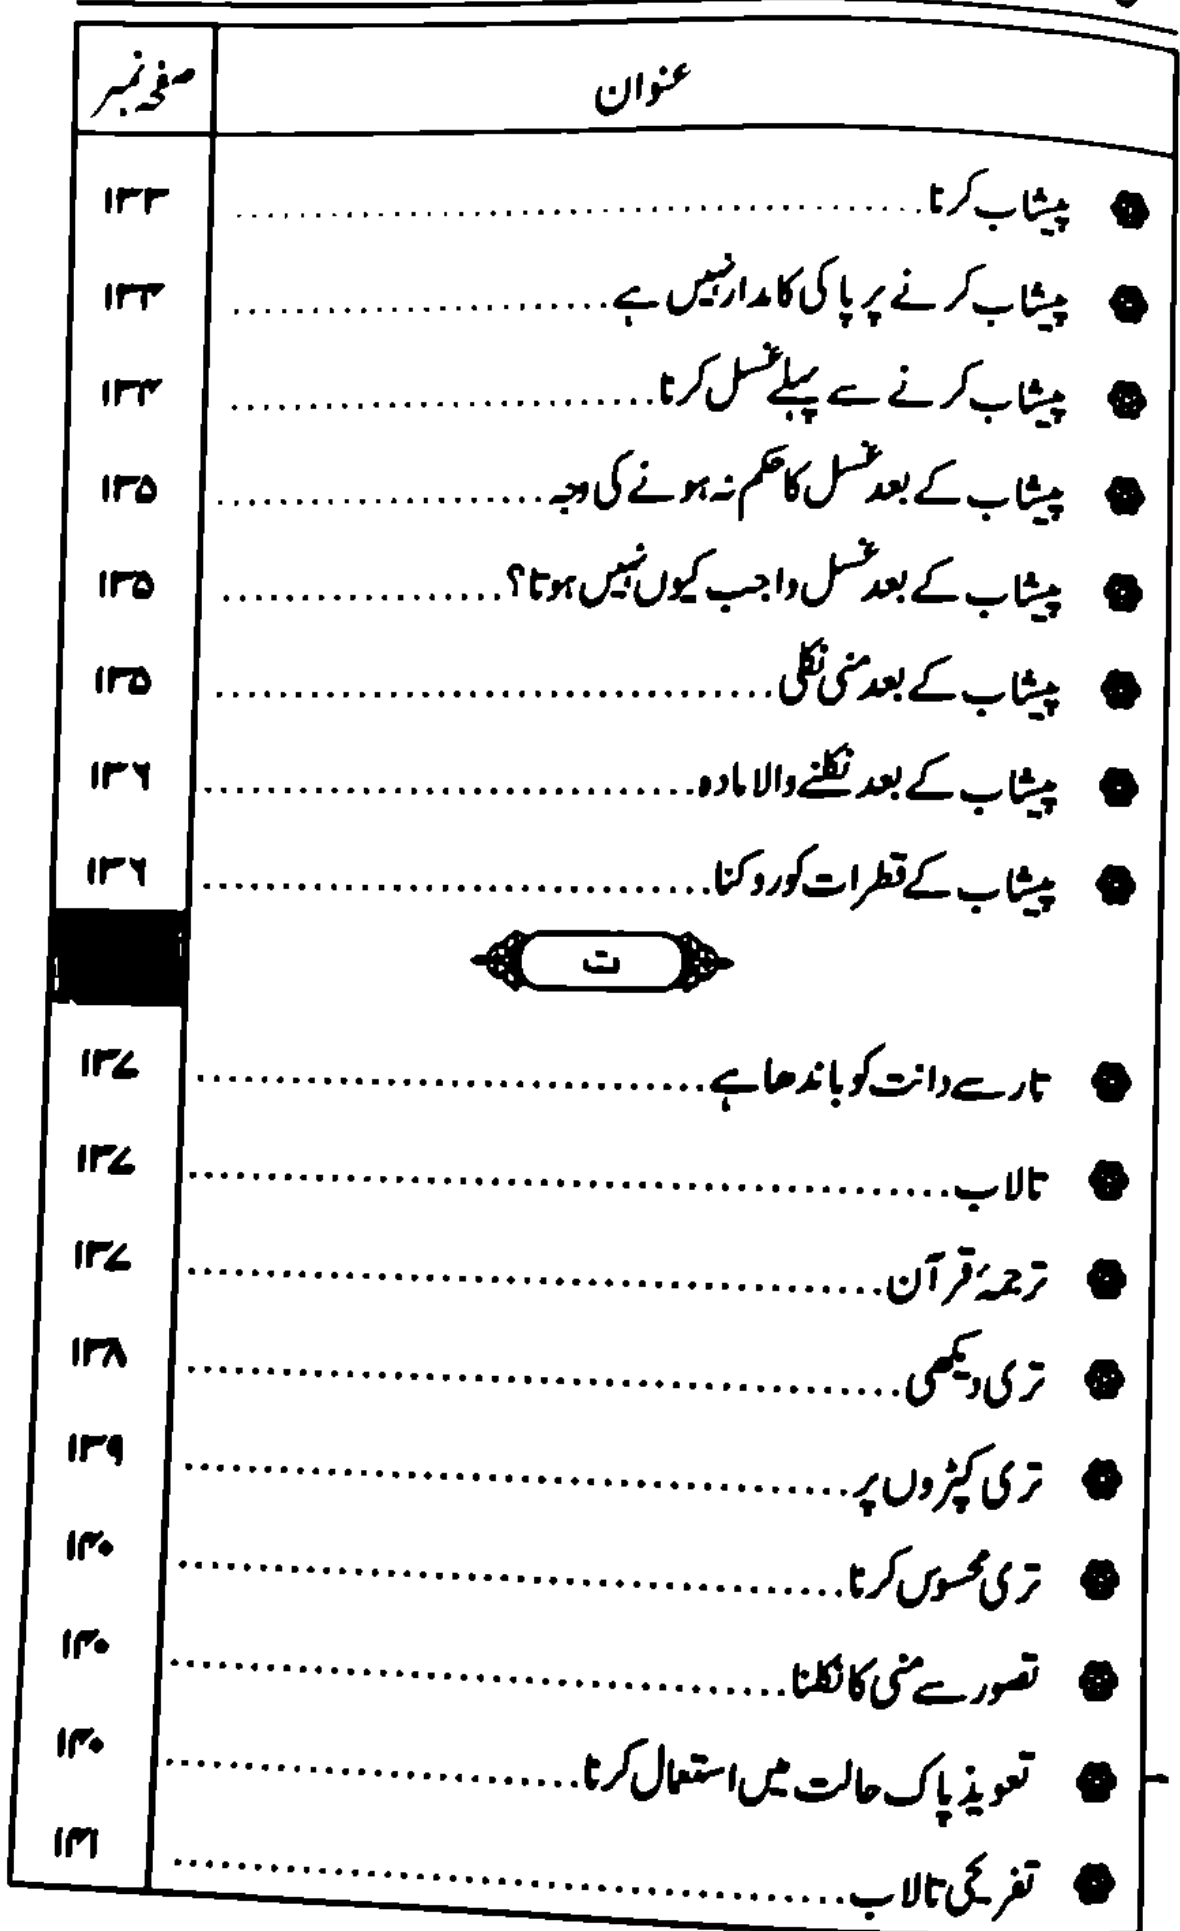 عنوان صفحہ نمبر
پیشاب کرنا ۱۳۳
پیشاب کرنے پر پاکی کا مدار نہیں ہے ۱۳۳
پیشاب کرنے سے پہلے غسل کرنا ۱۳۴
پیشاب کے بعد غسل کا حکم نہ ہونے کی وجہ ۱۳۵
پیشاب کے بعد غسل واجب کیوں نہیں ہوتا؟ ۱۳۵
پیشاب کے بعد منی نکلی ۱۳۵
پیشاب کے بعد نکلنے والا مادہ ۱۳۶
پیشاب کے قطرات کو روکنا ۱۳۶
ت
تار سے دانت کو باندھا ہے ۱۳۷
تالاب ۱۳۷
ترجمۂ قرآن ۱۳۷
تری دیکھی ۱۳۸
تری کپڑوں پر ۱۳۹
تری محسوس کرنا ۱۴۰
تصور سے منی کا نکلنا ۱۴۰
تعویذ پاک حالت میں استعمال کرنا ۱۴۰
تفریحی تالاب ۱۴۱